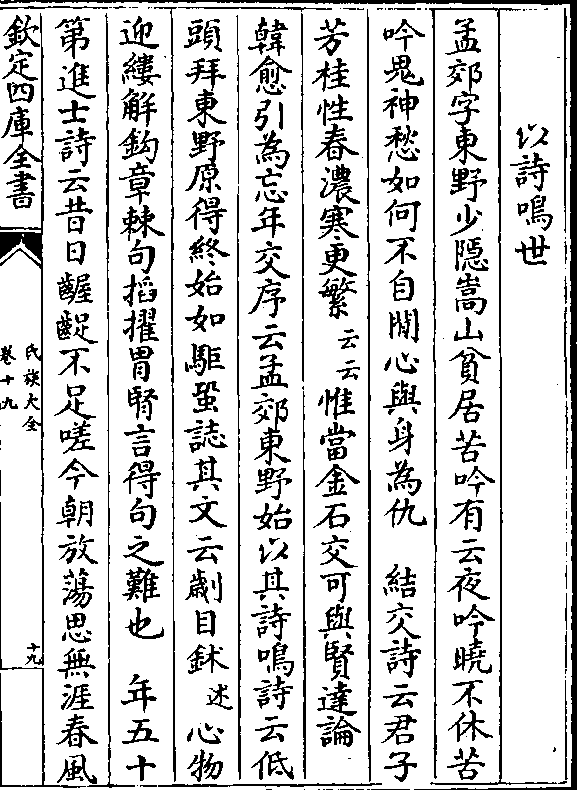 以詩鳴世
孟郊字東野少隱嵩山貧居苦吟有云夜吟曉不休苦
吟鬼神愁如何不自閒心與身為仇　結交詩云君子
芳桂性春濃寒更繁云云惟當金石交可與賢達論
韓愈引為忘年交序云孟郊東野始以其詩鳴詩云低
頭拜東野原得終始如駏蛩誌其文云劌目鉥述心物
迎縷解鈎章棘句搯擢胃腎言得句之難也　年五十
第進士詩云昔日齷齪不足嗟今朝放蕩思無涯春風
欽定四庫全書
氏族大全
卷十九
十九